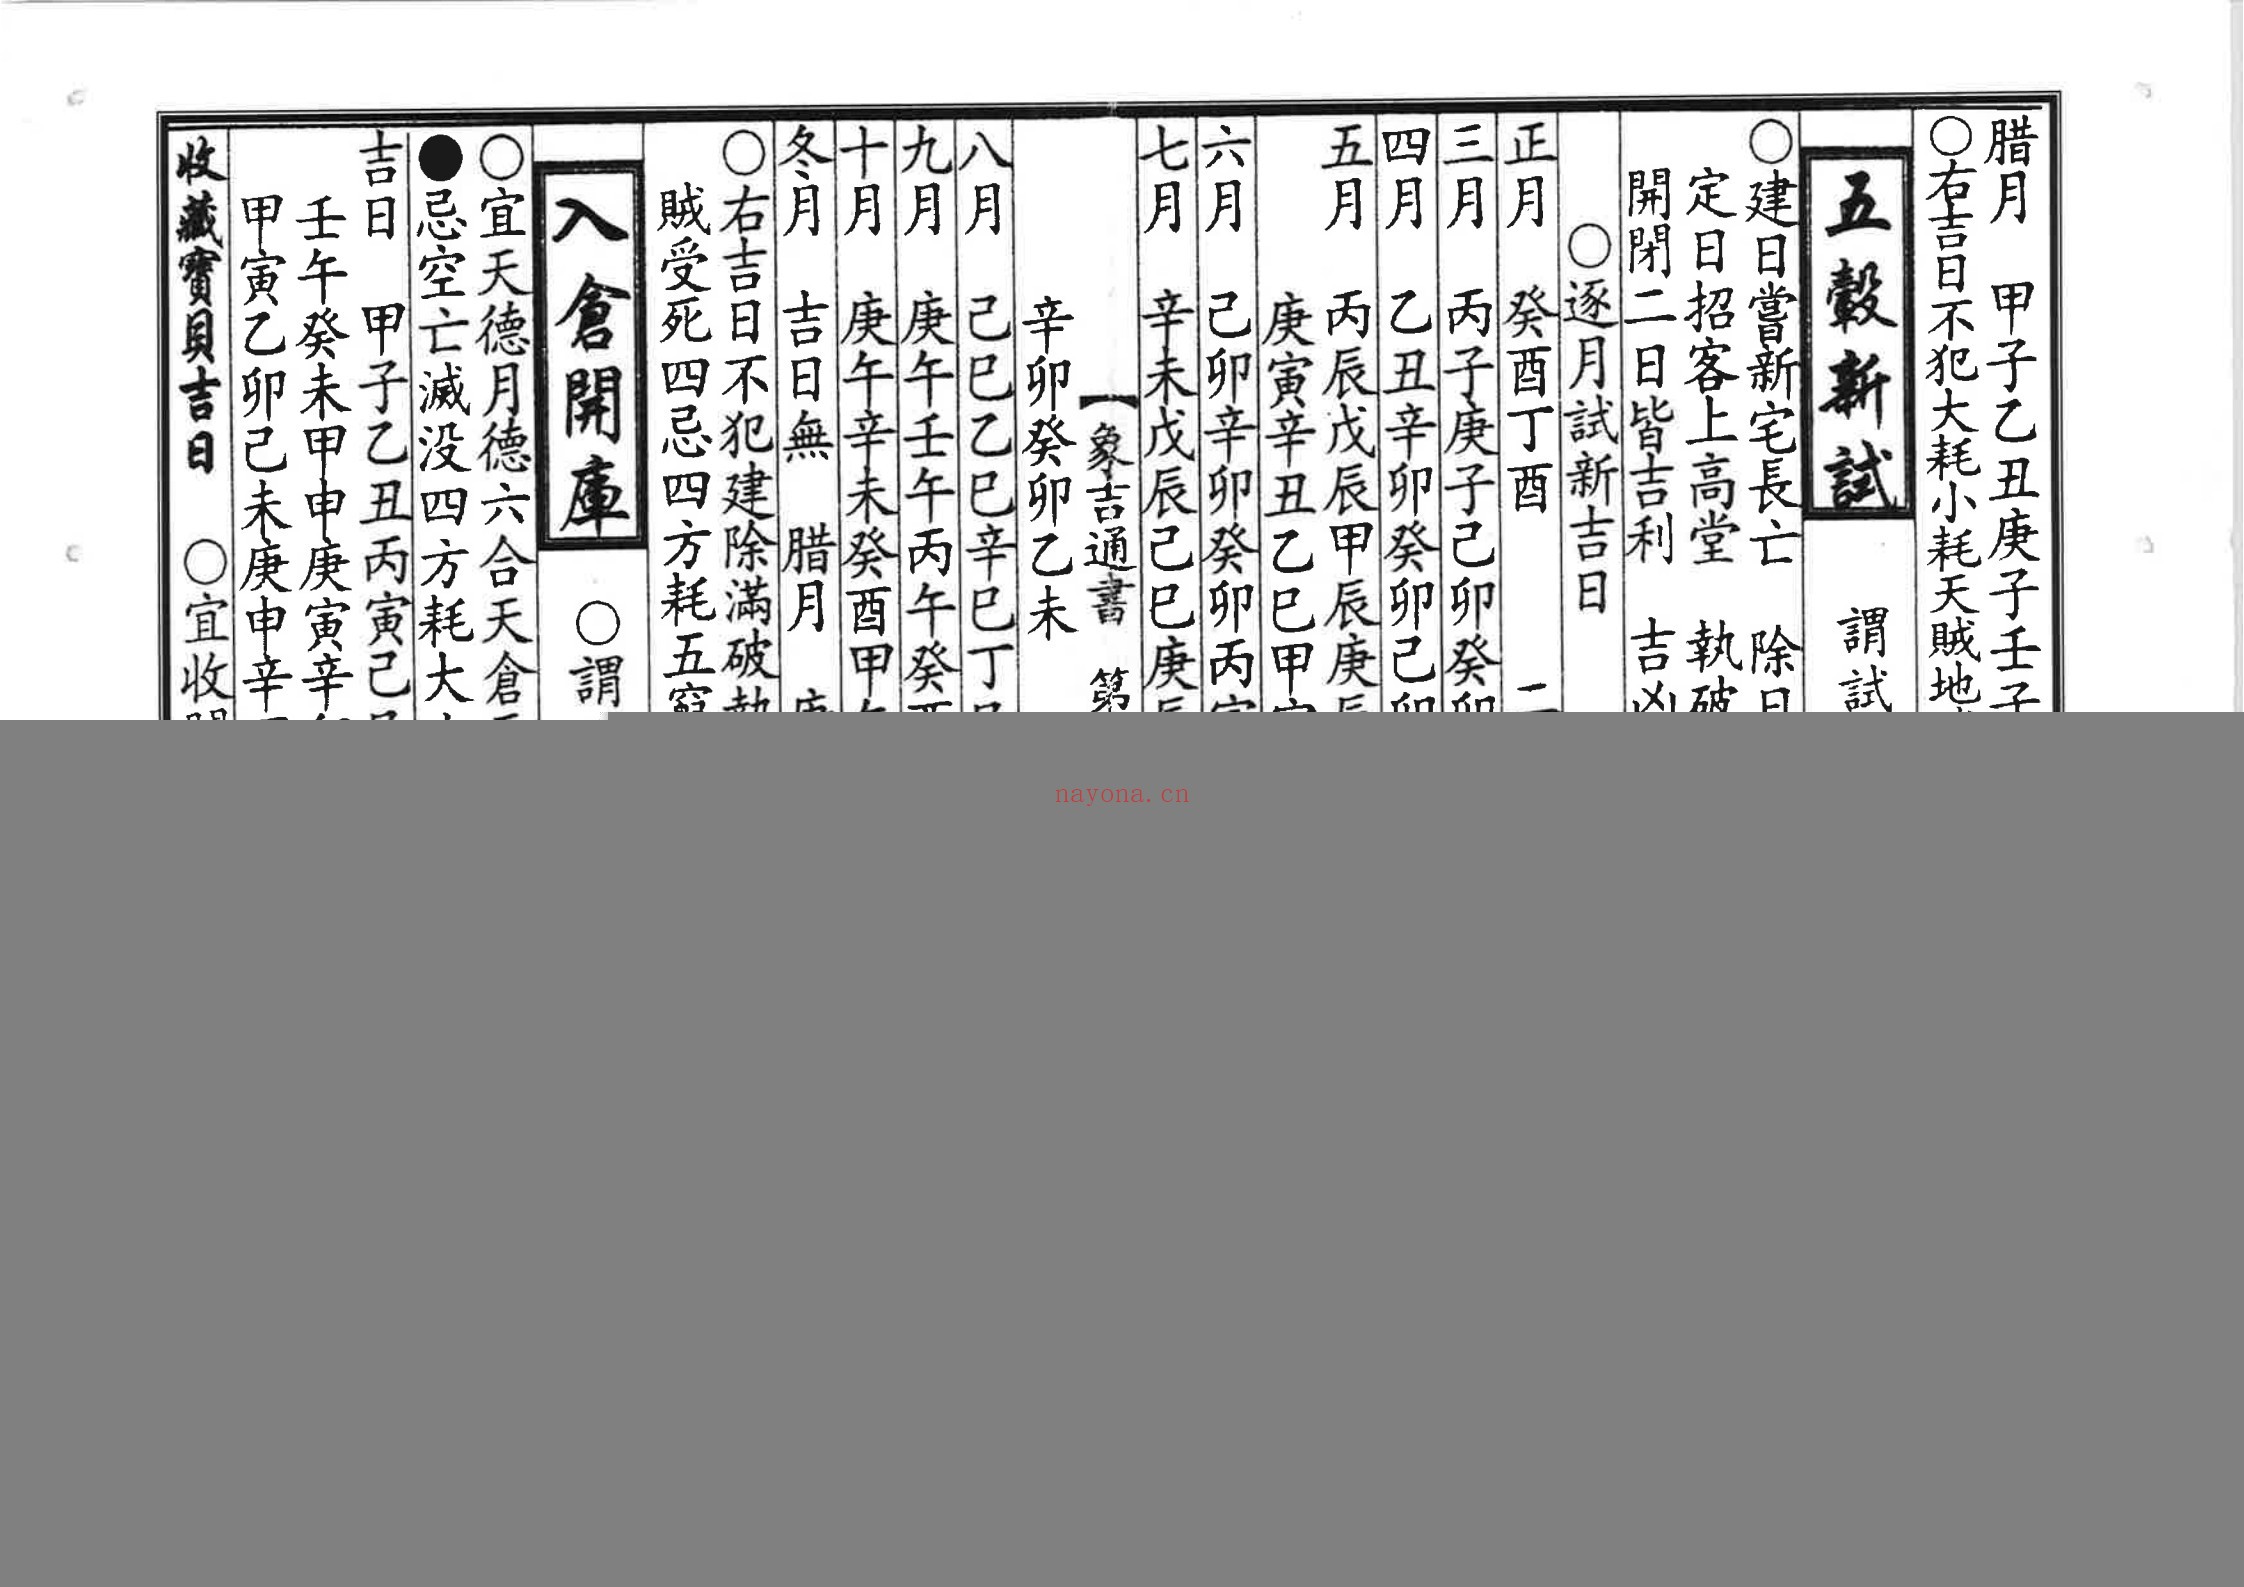 腊月　甲子乙丑庚子壬子
〇右吉日不犯大耗小耗天賊地
五穀新試　謂試
〇建日嘗新宅長亡　除日
定日招客上高堂　執破
開閉二日皆吉利　吉凶
〇逐月試新吉日
正月　癸酉丁酉　二
三月　丙子庚子己卯癸卯
四月　乙丑辛卯癸卯己卯
五月　丙辰戊辰甲辰庚辰
庚寅辛丑乙巳甲寅
六月　己卯辛卯癸卯丙寅
七月　辛未戊辰己巳庚辰
【象吉通書　第
辛卯癸卯乙未
八月　己巳乙巳辛巳丁巳
九月　庚午壬午丙午癸酉
十月　庚午辛未癸酉甲午
冬月　吉日無　腊月　庚
〇右吉日不犯建除滿破執
賊受死四忌四方耗五窮
入倉開庫　〇謂
〇宜天德月德六合天倉
●忌空亡滅没四方耗大
吉日　甲子乙丑丙寅己
壬午癸未甲申庚寅辛卯
甲寅乙卯己未庚申辛
收藏寶貝吉日　〇宜收開
nayona.cn